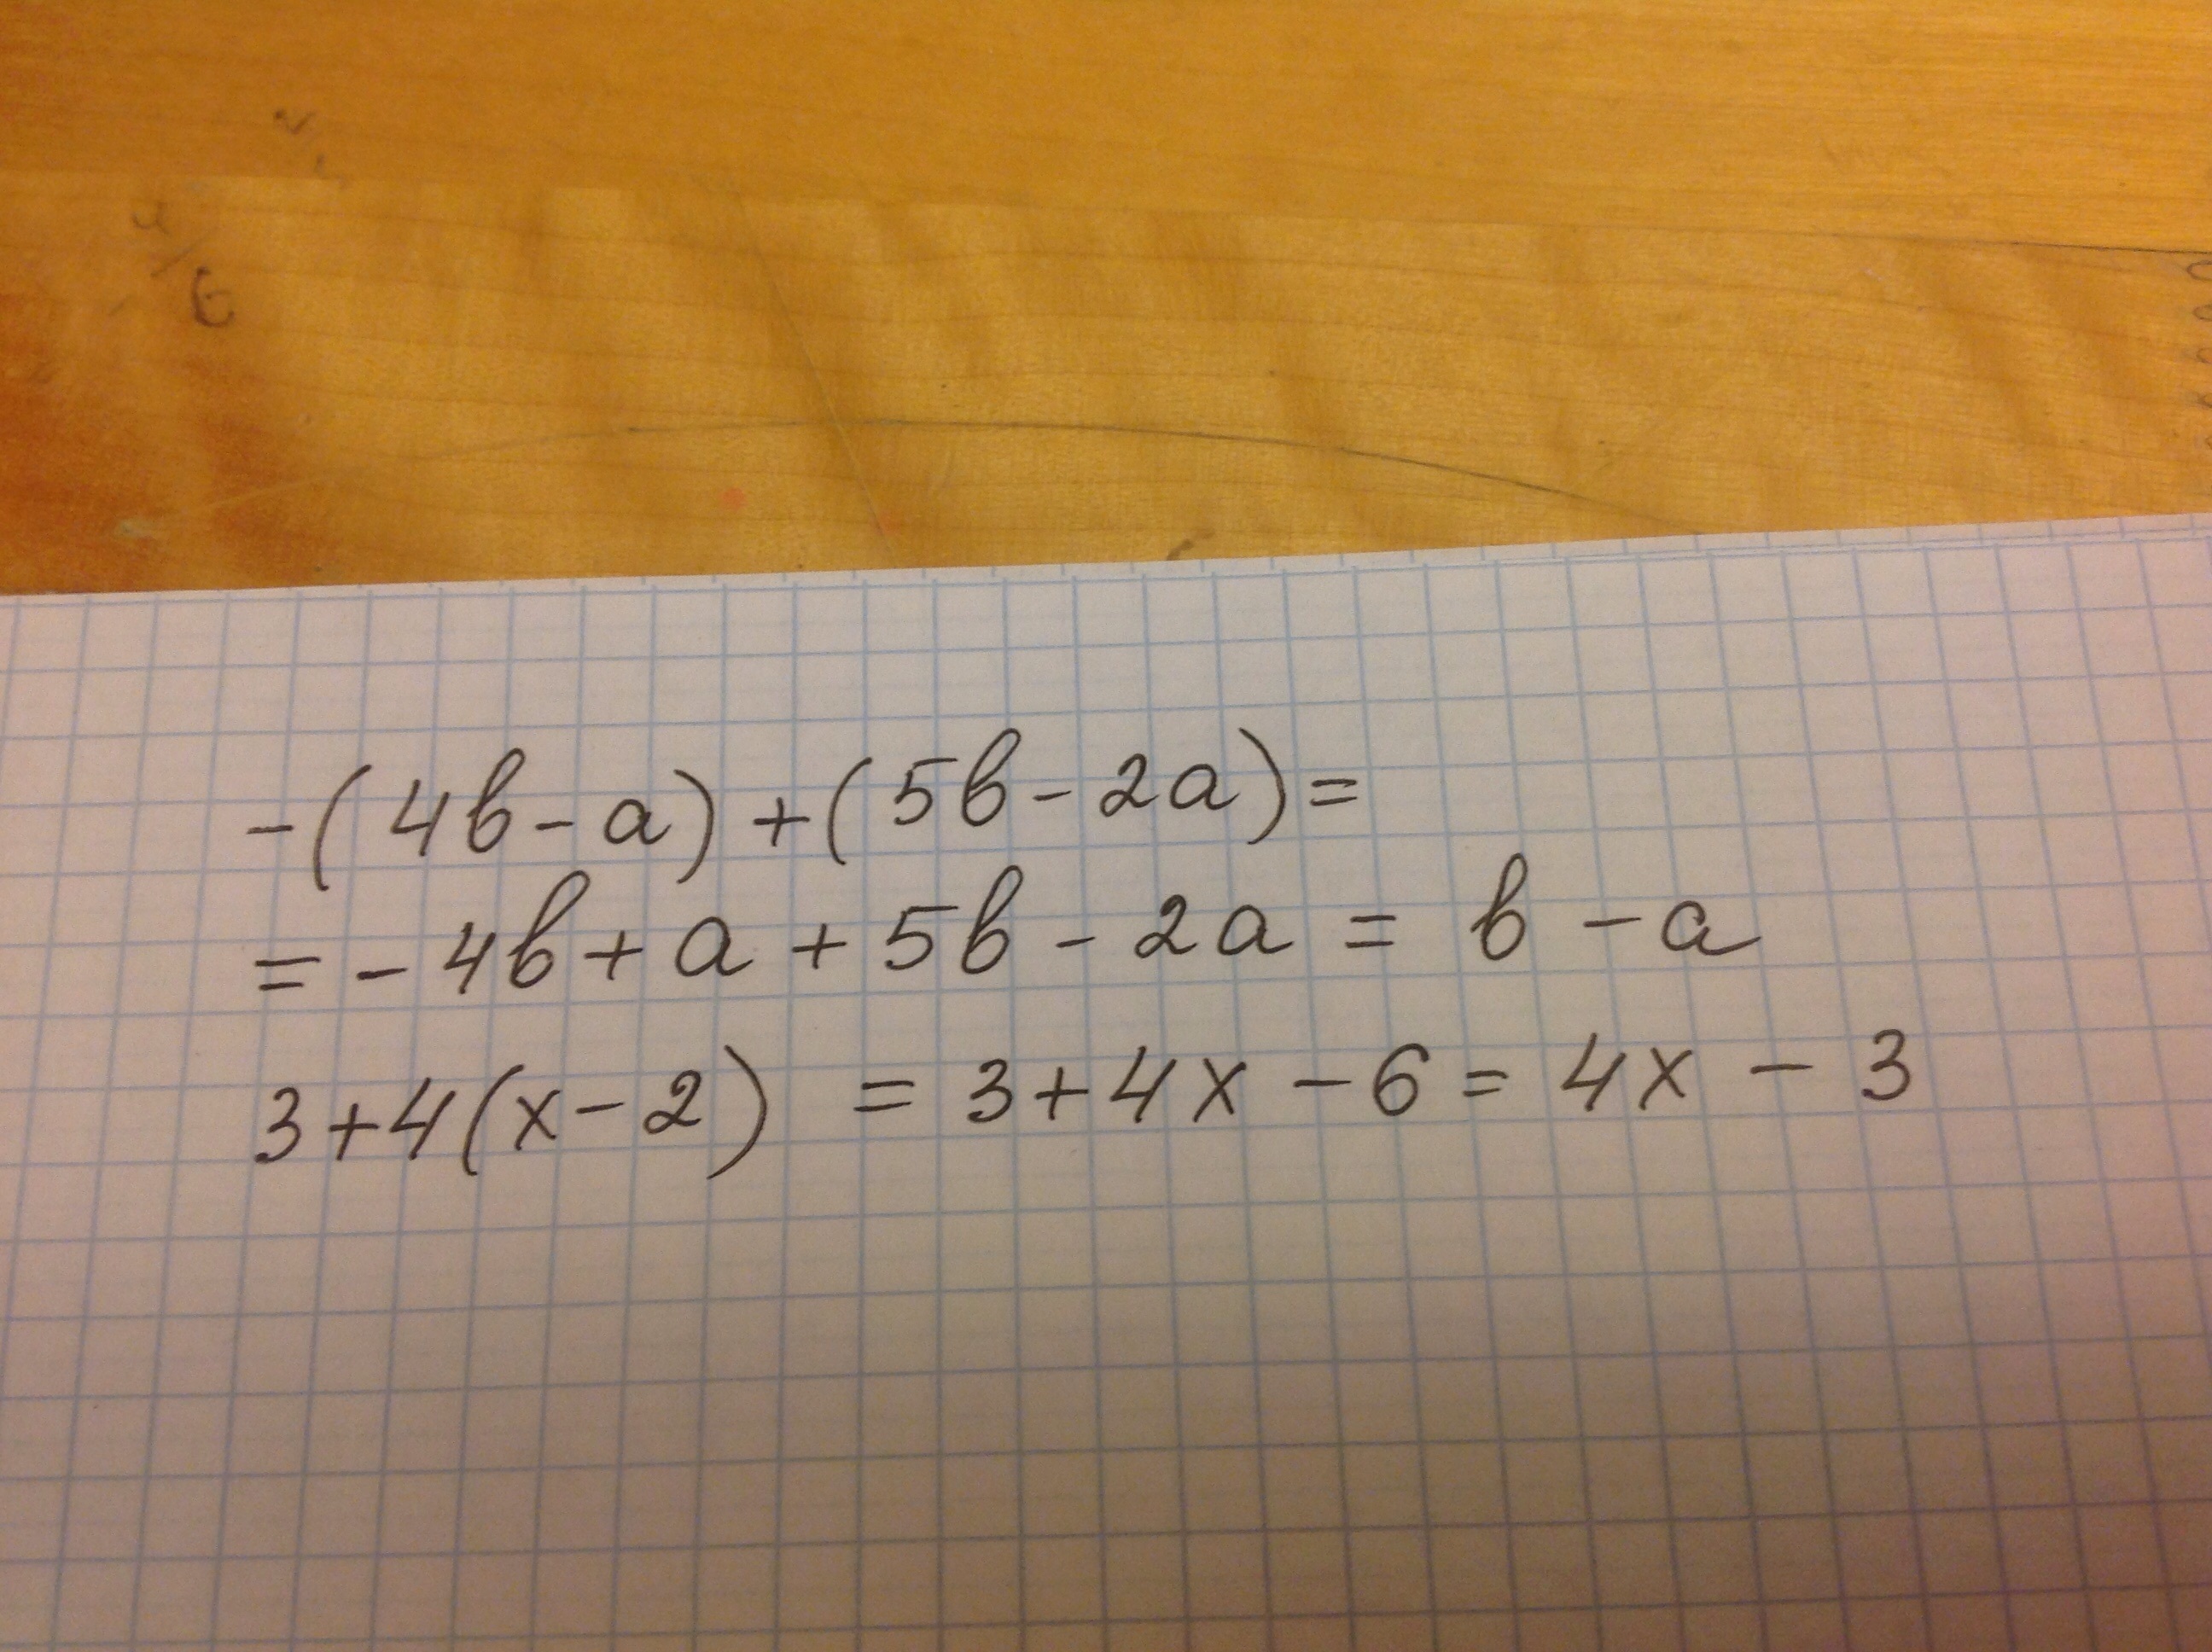 -(4b-a)+(5b-2a)=
=-4b+a+5b-2a = b-a
3+4(x-2) = 3+4x-6 = 4x-3